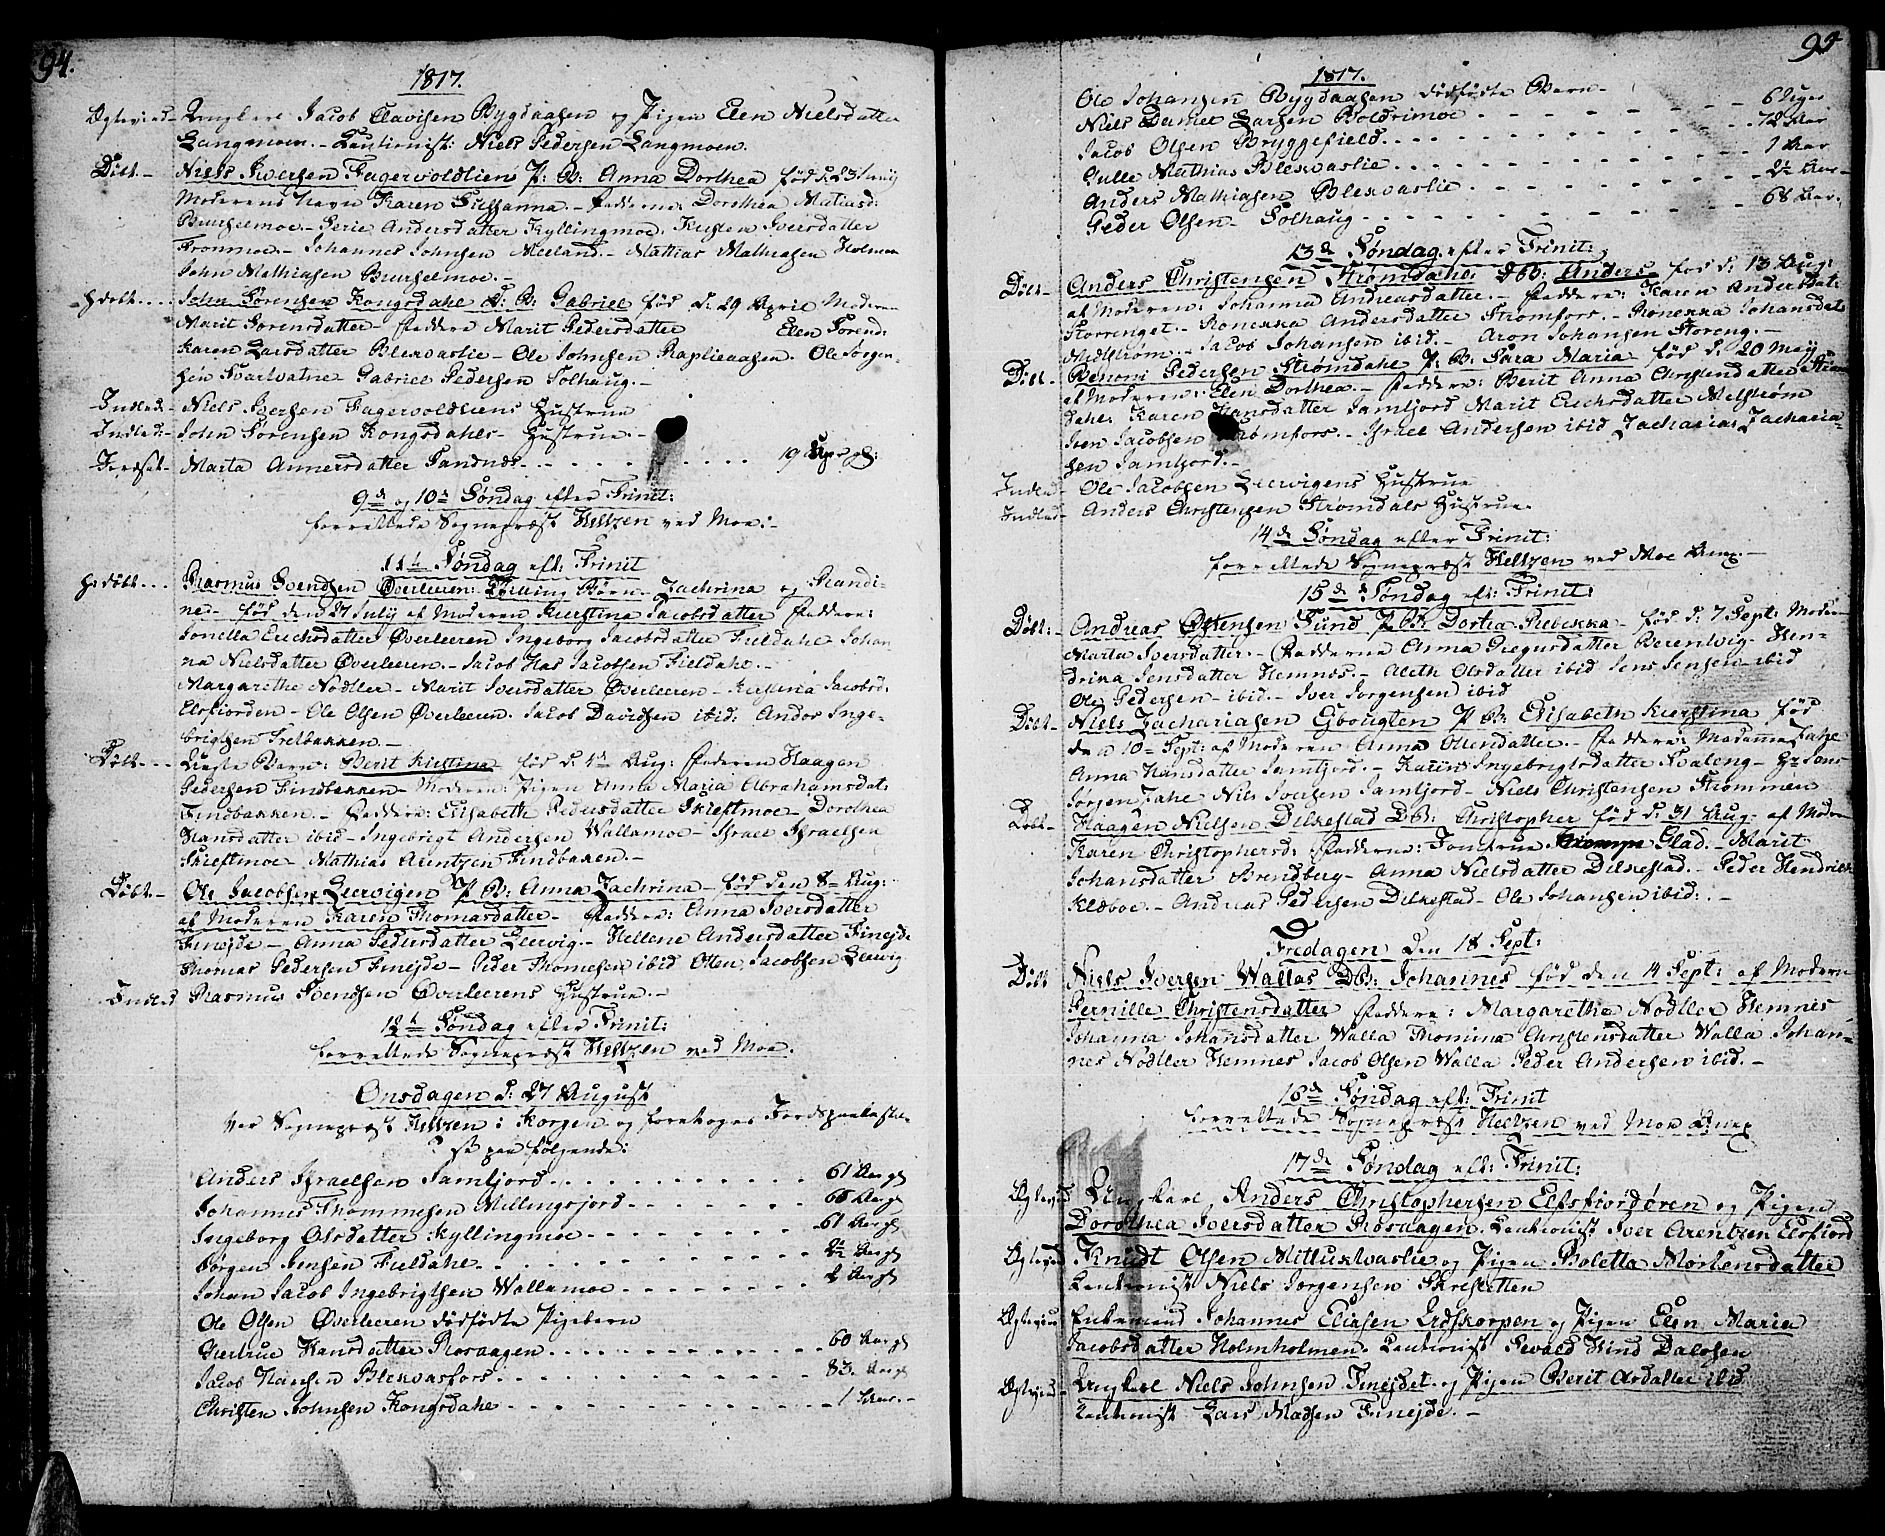 94.
1817.
Ægtevied - Ungkarl Jacob Clavisen Bygdaasen og Pigen Elen Nielsdatter
Langmoen. - Cautionist: Niels Pedersen Langmoen.
Døbt. - Niels Iversen Fagervoldlien P: B: Anna Dorthea fød d.
Moderens Navn Karen Sussanna. - Faddere: Dorothea Matiasd:
Bruselmoe. - Berit Andersdatter Kyllingmoe. Kirsten Iversdatter
Trommoe. - Johannes Johnsen Meland. - Mathias Mathiasen Holmen
John Mathiasen Bruselmoe. -
Hdøbt.... John Sørensen Kongsdahl d: B: Gabriel fød d: 29 April Moderen
Marit Sørensdatter - Faddere Marit Pedersdatter Elen Sørend:
Karen Larsdatter Blexvaslie - Ole Johnsen Raplieaasen. Ole Jørgen-
sen Svartvatne - Gabriel Pedersen Solhaug. -
Indled - Niels Iversen Fagervoldliens Hustrue
Indled: - John Sørensen Kongsdahls - Hustrue. -
Jordfæst - Marta Annersdatter Sandnæs. . . . . . . . . 19 Aar gl:
9de og 10de Søndag efter Trinit:
forrettede Sognepræst Heltzen ved Moe: -
11te Søndag eft: Trinit
Hdøbt... Rasmus Svendsen Øverleeren: Tvilling Børn - Zachrina og Randi-
ne - fød den 27 July af Moderen Kierstina Jacobsdatter Faddere:
Jonetta Erichsdatter Øverleeren Ingeborg Jacobsdatter Fieldahl Johan
na Nielsdatter Øverleeren. - Jacob Has Jacobsen Fieldahl. -
Margarethe Nodler - Marit Iversdatter Øverleeren - Kirstina Jacobsd:
Elsfiorden - Ole Olsen Øverleeren. Jacob Davidsen ibid: Andor Inge-
brigtsen Bretbakken. -
Døbt - - - Uægte Barn: Berit Kirstina fød d. 1de Aug: Faderen Haagen
Pedersen Findbakken - Moderen: Pigen Anna Maria Abrahamsdat:
Findbakken. - Faddere: Elisabeth Pedersdatter Skieftmoe - Dorothea
Hansdatter ibid - Ingebrigt Andersen Wallamoe - Israel Israelsen
Skieftmoe - Mathias Arentzen Findbakken. -
Døbt - Ole Jacobsen Leervigen P: B: Anna Zachrina - fød den 8de Aug:
af Moderen Karen Thomasdatter - Faddere: Anna Iversdatter
Finejde - Anna Pedersdatter Leervig. - Hellene Andersdatter Finejde
Thomas Pedersen Finejde - Peder Thomesen ibid Otten Jacobsen Leervig
Indled Rasmus Svendsen Øverleerens Hustrue. -
12te Søndag efter Trinit:
forrettede Sognepræst Heltzen ved Moe.
Onsdagen d: 27 August
var Sognepræst Heltzen i Korgen og foretoges Jordspaakastel-
se paa følgende:
Anders Israelsen Jamtjord. . . . . . . . 61 Aar gl
Johannes Thommesen Millingsjord - - - - - - 66 Aar gl
Ingeborg Olsdatter Kyllingmoe - - - - - - - 61 Aar gl
Jørgen Jensen Fieldahl. - - - - - - - - 2½ Aar gl
Johan Jacob Ingebrigtsen Wallamoe - - - - - - 2 Aar gl
Ole Olsen Øverleeren dødfødte Pigebarn
Giertrue Hansdatter Rosaagen - - - - - - - 60 Aar gl
Jacob Hansen Blexvasfors. - - - - - - - - 83. Aar gl
Christen Johnsen Kongsdahl - - - - - - - 1 Aar. -
95
1817.
Ole Johansen Bygdaasen dødfødte Barn -
Niels Daniel Larsen Boldrimoe - - - - - - - 6 Uger
Jacob Olsen Bryggefield. - - - - - - - 72 Aar
Tulle Mathias Blexvaslie - - - - - - - 1 Aar
Anders Mathiasen Blexvaslie - - - - - - 2½ Aar -
Peder Olsen - Solhaug - - - - - - - 68 Aar.
13de Søndag efter Trinit:
Døbt - Anders Christensen Strømdahl: D B: Anders - fød d: 13 Aug:
af Moderen: Johanna Andreasdatter. - Faddere: Karen Andersdat:
Storrenget. - Ronekka Andersdatter Strømfors. - Ronekka Johansdat:
Melstrøm. - Jacob Johansen ibid. - Aron Johansen Storeng. -
Døbt - Benoni Pedersen Strømdahl P: B: Sara Maria fød d. 20 May
af Moderen: Elen Dorthea. - Faddere: Berit Anna Christendatter Strøm
dahl. Karen Hansdatter Jamtjord Marit Erichsdatter Melstrøm
Iven Jacobsen Strømfors. - Israel Andersen ibid Zacharias Zacharia-
sen Jamtjord. -
Indled - Ole Jacobsen Leervigens Hustrue
Indled - Anders Christensen Strømdals Hustrue.
14de Søndag efter Trinit:
forrettede Sognepræst Heltzen ved Moe Anex. -
15de Søndag ef: Trinit:
Døbt: - Andreas Østensen Fund P B: Dortea Rebekka - fød d: 7 Sept: Moderen
Marta Iversdatter. - Fadderne Anna Gregusdatter Berenvig - Hen-
drika Jensdatter Hemnæs. - Aleth Olsdatter ibid Jens Jensen - ibid
Ole Pedersen - ibid. - Iver Jørgensen ibid
Døbt - Niels Zachariasen Gbougten P B: Elisabeth Kierstina fød
den 10de Sept: af Moderen Anna Ottendatter. - Faddere: Madamme Zahl
Anna Hansdatter Jamtjord. - Karen Ingebrigtsdatter Koaleng - Hr: Jens
Jørgen Zahl Niels Iversen Jamtjord - Niels Christensen Strømmen
Døbt - Haagen Nielsen Dilkestad DB: Christopher fød d: 31 Aug: af Moder
Karen Christophersd: Fadderne: Jomfrue Glad. - Marit
Johansdatter Brendberg - Anna Nielsdatter Dilkestad. - Peder Hendrich
Kleboe. - Andreas Pedersen Dilkestad - Ole Johansen ibid: . -
Fredagen den 18 Sept:
Døbt Niels Iversen Wallas DB: Johannes fød den 14 Sept: af Modern
Pernille Christensdatter Faddere: Margaretha Nodler Hemnes
Johanna Johansdatter Walla Thomina Christensdatter Walla Johan-
nes Nodler Hemnes Jacob Olsen Walla Peder Andersen ibid. -
16de Søndag eft: Trinit
forrettede Sognepræst Heltzen ved Moe Anex
17de Søndag eft: Trinit:
Ægtevied Ungkarl Anders Christophersen Elfsfiordøren og Pigen
Dorothea Iversdatter Rosaagen. Cautionist Iver Arentzen Elsfiord
Ægtevied Knudt Olsen Mittuxlvaslie og Pigen Boletta Mortensdatter
Cautionist Niels Jørgensen Skresletten
Ægtevied Enkemand Johannes Eliasen Lidskorpen og Pigen Elen Maria
Jacobsdatter Holmholmen. Cautionist Sevald Hind Dalosen
Ægtevied - Ungkarl Niels Johnsen Finejdet og Pigen Berit Arsdatter ibid
Cautionist Lars Madsen Finejde. -